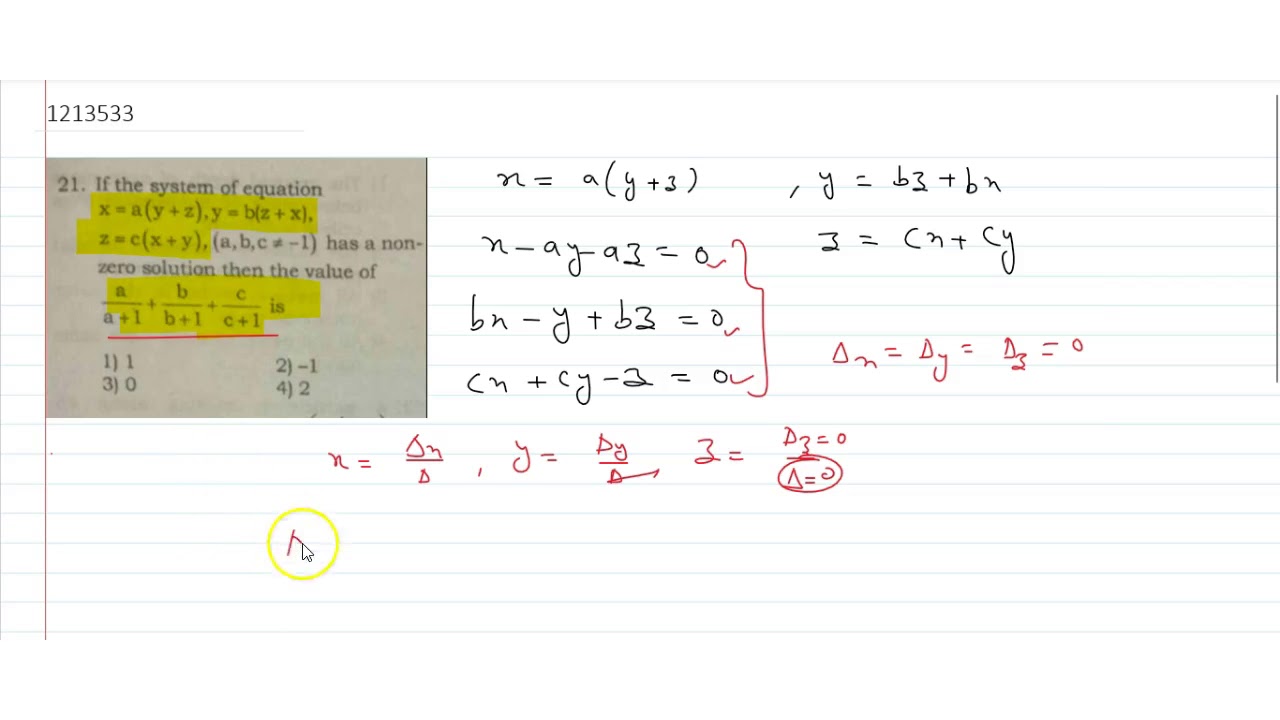 1213533
21. If the system of equation
x = a(y + z), y = b(z + x),
z = c(x + y), (a, b, c ≠ -1) has a non-
zero solution then the value of
a/a+1 + b/b+1 + c/c+1 is
1) 1 2) -1
3) 0 4) 2
x = a(y+z) , y = bz + bx
x - ay - az = 0 z = cx + cy
bx - y + bz = 0
Δx = Δy = Δz = 0
cx + cy - z = 0
x = Δx/Δ , y = Δy/Δ , z = Δz=0/Δ=0